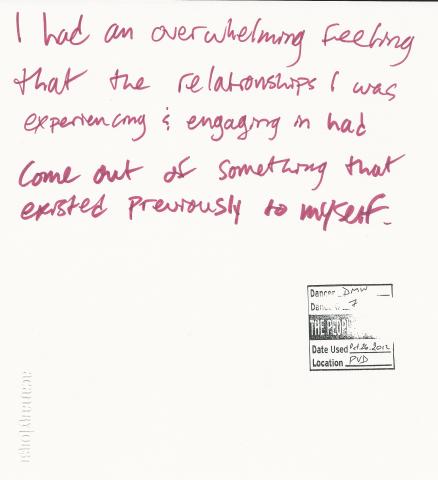 I had an overwhelming feeling
that the relationships I was
experiencing & engaging in had
come out of something that
existed previously to myself.
Dancer DMW
7
THE PEOPL
Date Used Oct.26.2012
Location PVD